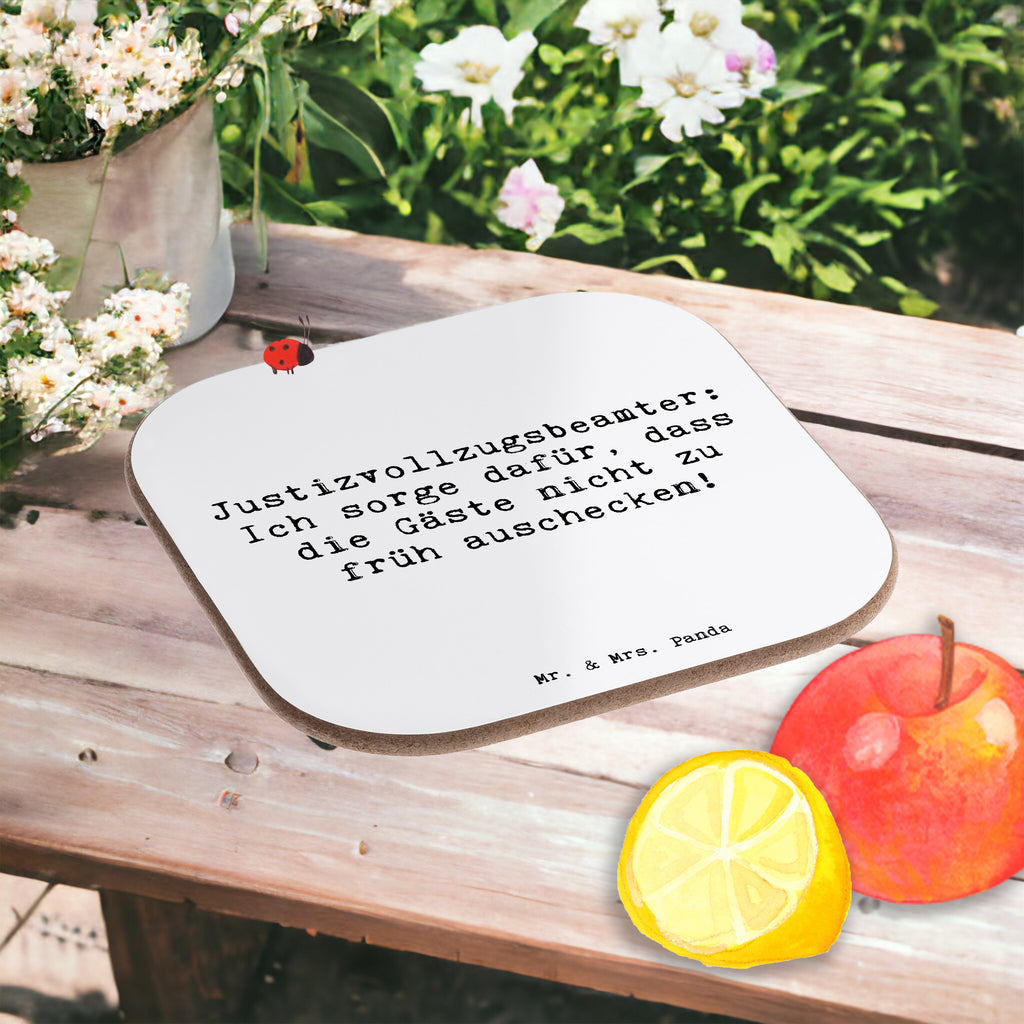 Justizvollzugsbeamter:
Ich sorge dafür, dass
die Gäste nicht zu
früh auschecken!
Mr. & Mrs. Panda